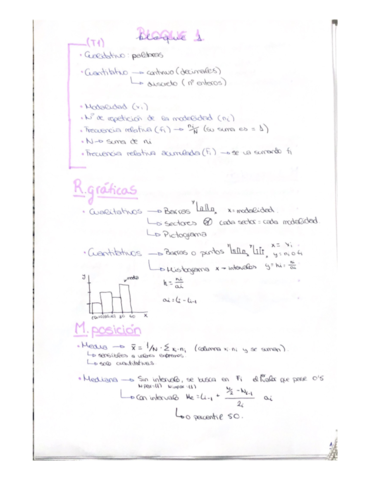 BLOQUE 1
(T1)
· Cualitativo
· Cuantitativo → continuo (decimales)
↳ discreto (nº enteros)
· Modalidad (xi)
· Nº de repetición de la modalidad (ni)
· Frecuencia relativa (fi) → ni/N (su suma es = 1)
· N → suma de ni
· Frecuencia relativa acumulada (Fi) → se va sumando fi
R. gráficas
· Cualitativos → Barras x = modalidad
↳ sectores cada sector = cada modalidad
↳ Pictograma
· Cuantitativos → Barras o puntos x = xi
y = ni o fi
↳ Histograma x → intervalos y = hi =
h = ni/ai
ai = Li - Li-1
M. posición
· Media → x̄ = 1/N · Σ xi · ni (columna xi ni y se suman)
↳ sensible a valores
↳ solo cuantitativos
· Mediana → Sin intervalo, se busca la Fi el que pase 0'5
↳ Con intervalo Me = Li-1 + (N/2 - Ni-1)/ni ai
↳ o percentil 50.